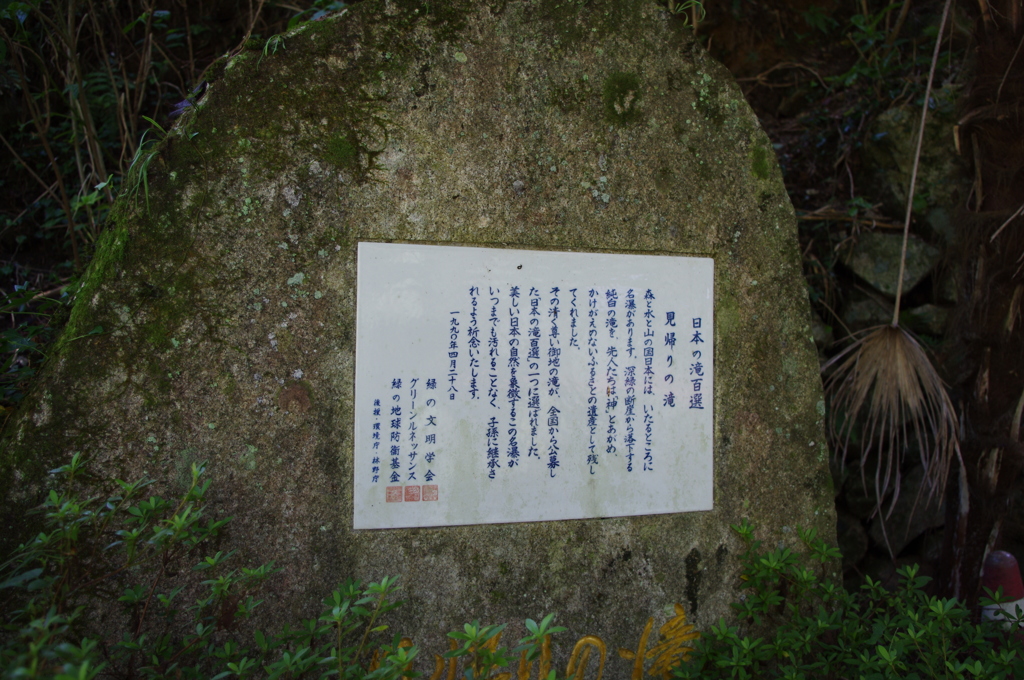 日本の滝百選
見帰りの滝
森と水と山の国日本には、いたるところに
名瀑があります。深緑の断崖から落下する
純白の滝を、先人たちは「神」とあがめ、
かけがえのないふるさとの遺産として残し
てくれました。
その清く尊い御地の滝が、全国から公募し
た「日本の滝百選」の一つに選ばれました。
美しい日本の自然を象徴するこの名瀑が
いつまでも汚れることなく、子孫に継承さ
れるよう祈念いたします。
一九九〇年四月二十八日
緑の文明学会
グリーンルネッサンス
緑の地球防衛基金
後援・環境庁 林野庁